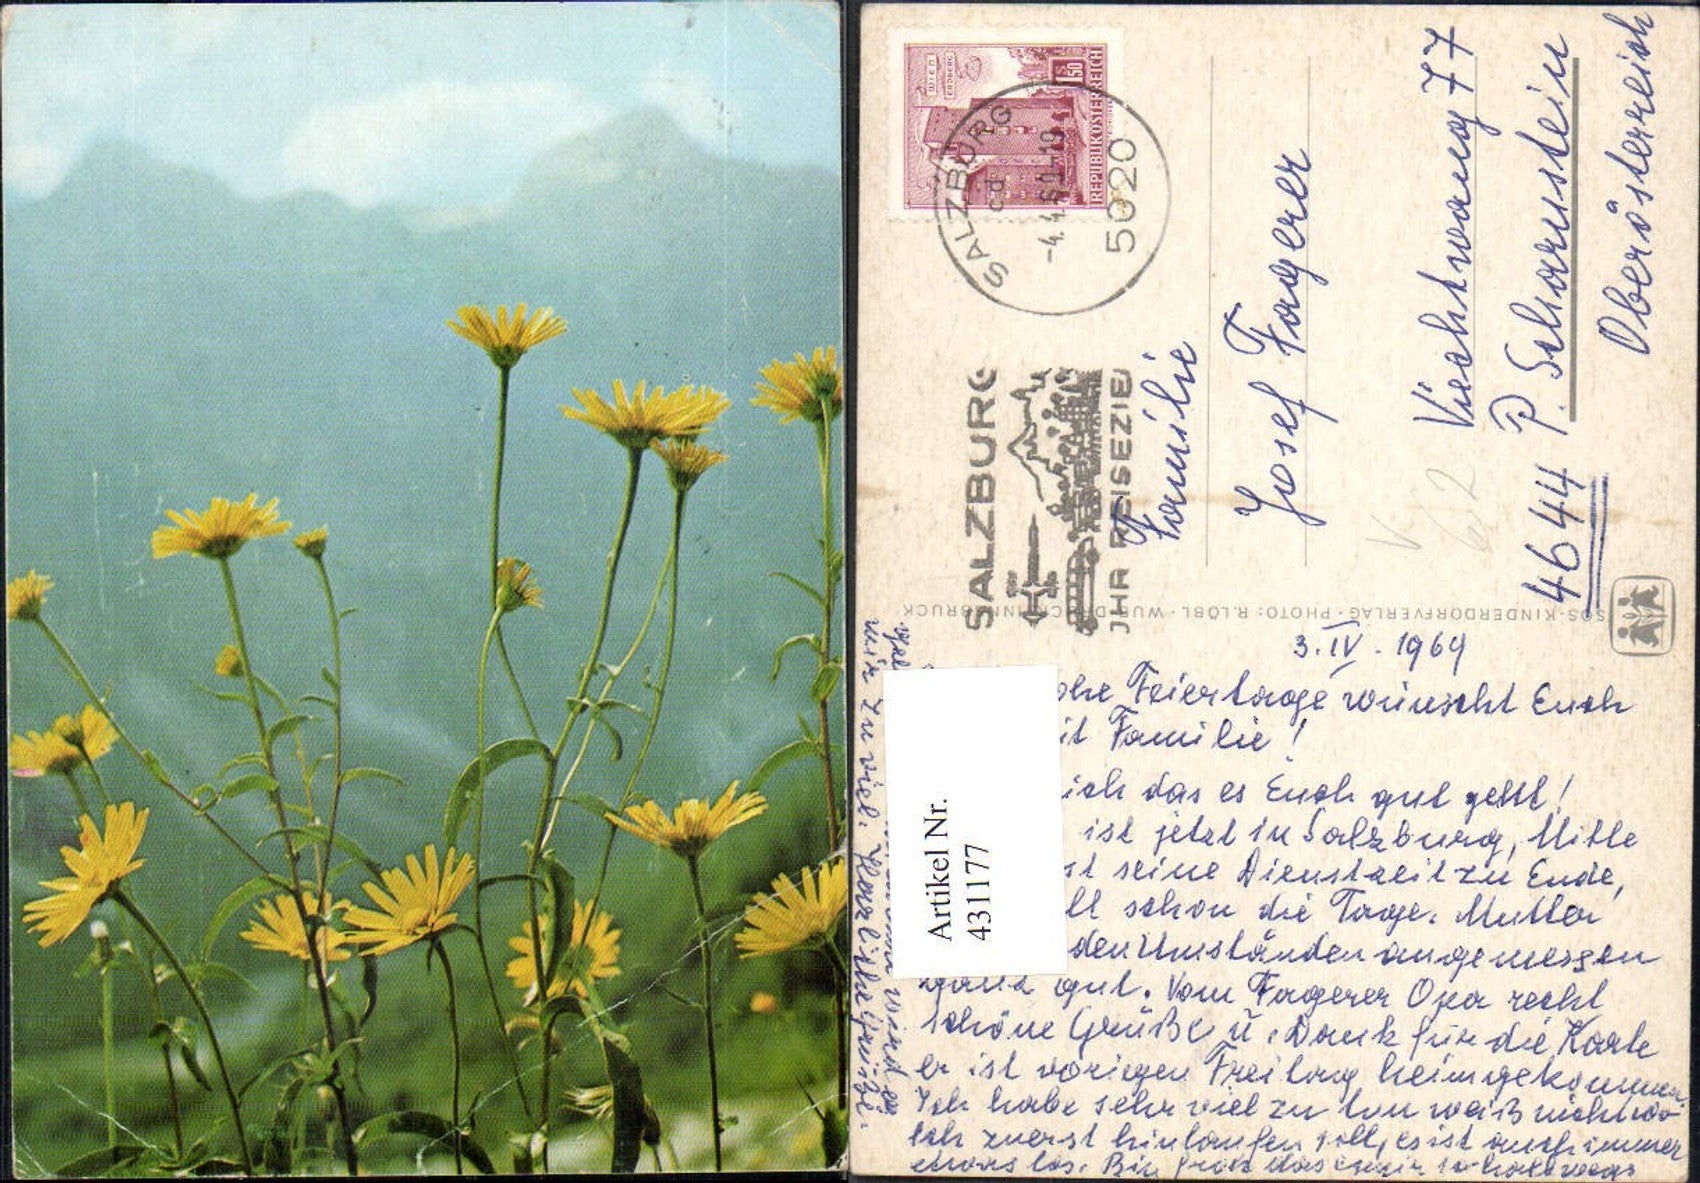 WIEN
ERDBERG
S 1.50
REPUBLIK ÖSTERREICH
SALZBURG
cd
-4.4.69-19
5020
SALZBURG
JHR REISEZIEL
Familie
Josef Fagerer
Viechtwang 77
P. Scharnstein
4644
Oberösterreich
V
62
SOS-KINDERDORFVERLAG · PHOTO: R.LÖBL · INNSBRUCK
3.IV.1969
ohe Feiertage wünscht Euch
it Familie!
ich das es Euch gut geht!
ist jetzt in Salzburg, Mitte
st seine Dienstzeit zu Ende,
lt schon die Tage. Mutter
den Umständen angemessen
ganz gut. Vom Fagerer Opa recht
schöne Grüße u. Dank für die Karte
er ist vorigen Freitag heimgekommen
Ich habe sehr viel zu tun weiß nicht wo
ich zuerst hinlaufen soll, es ist auch immer
etwas los. Bin froh das es mir so halbwegs
wird es
mir zu viel. Herzliche Grüße.
Artikel Nr.
431177